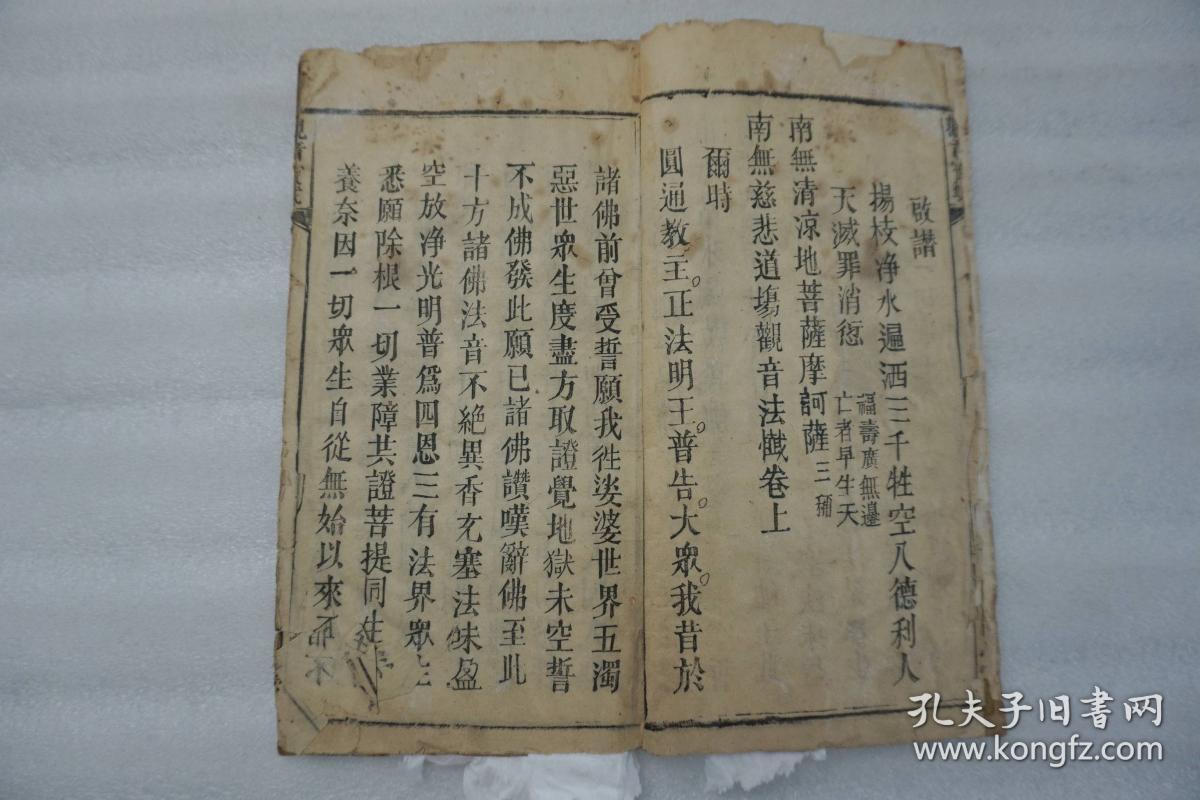 啟讃
楊枝净水遍洒三千牲空八德利人
天滅罪消愆
福壽廣無邊
亡者早生天
南無清凉地菩薩摩訶薩三稱
南無慈悲道塲觀音法懴卷上
爾時
圓通教主。正法明王。普告。大衆。我昔於
諸佛前曾受誓願我徃娑婆世界五濁
惡世衆生度盡方取證覺地獄未空誓
不成佛發此願已諸佛讚嘆辭佛至此
十方諸佛法音不絶異香充塞法味盈
空放净光明普爲四恩三有法界衆生
悉願除根一切業障共證菩提同生
養奈因一切衆生自從無始以來不
孔夫子旧書网
www.kongfz.com